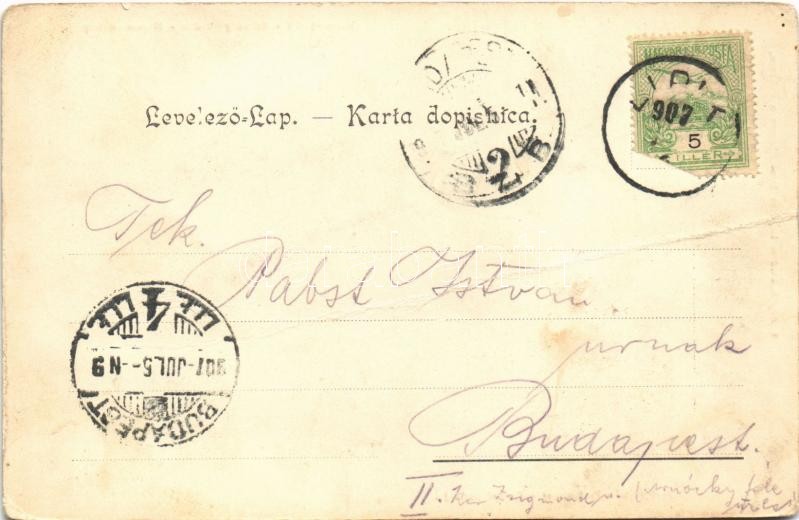 MAGYAR KIR. POSTA
907
5
FILLÉR
Levelező-Lap. — Karta dopisnica.
Tek.
Pabst István
urnak
Budapest.
II. ker Zsigmond u.
BUDAPEST
907 JUL 5 - N 9
4
2